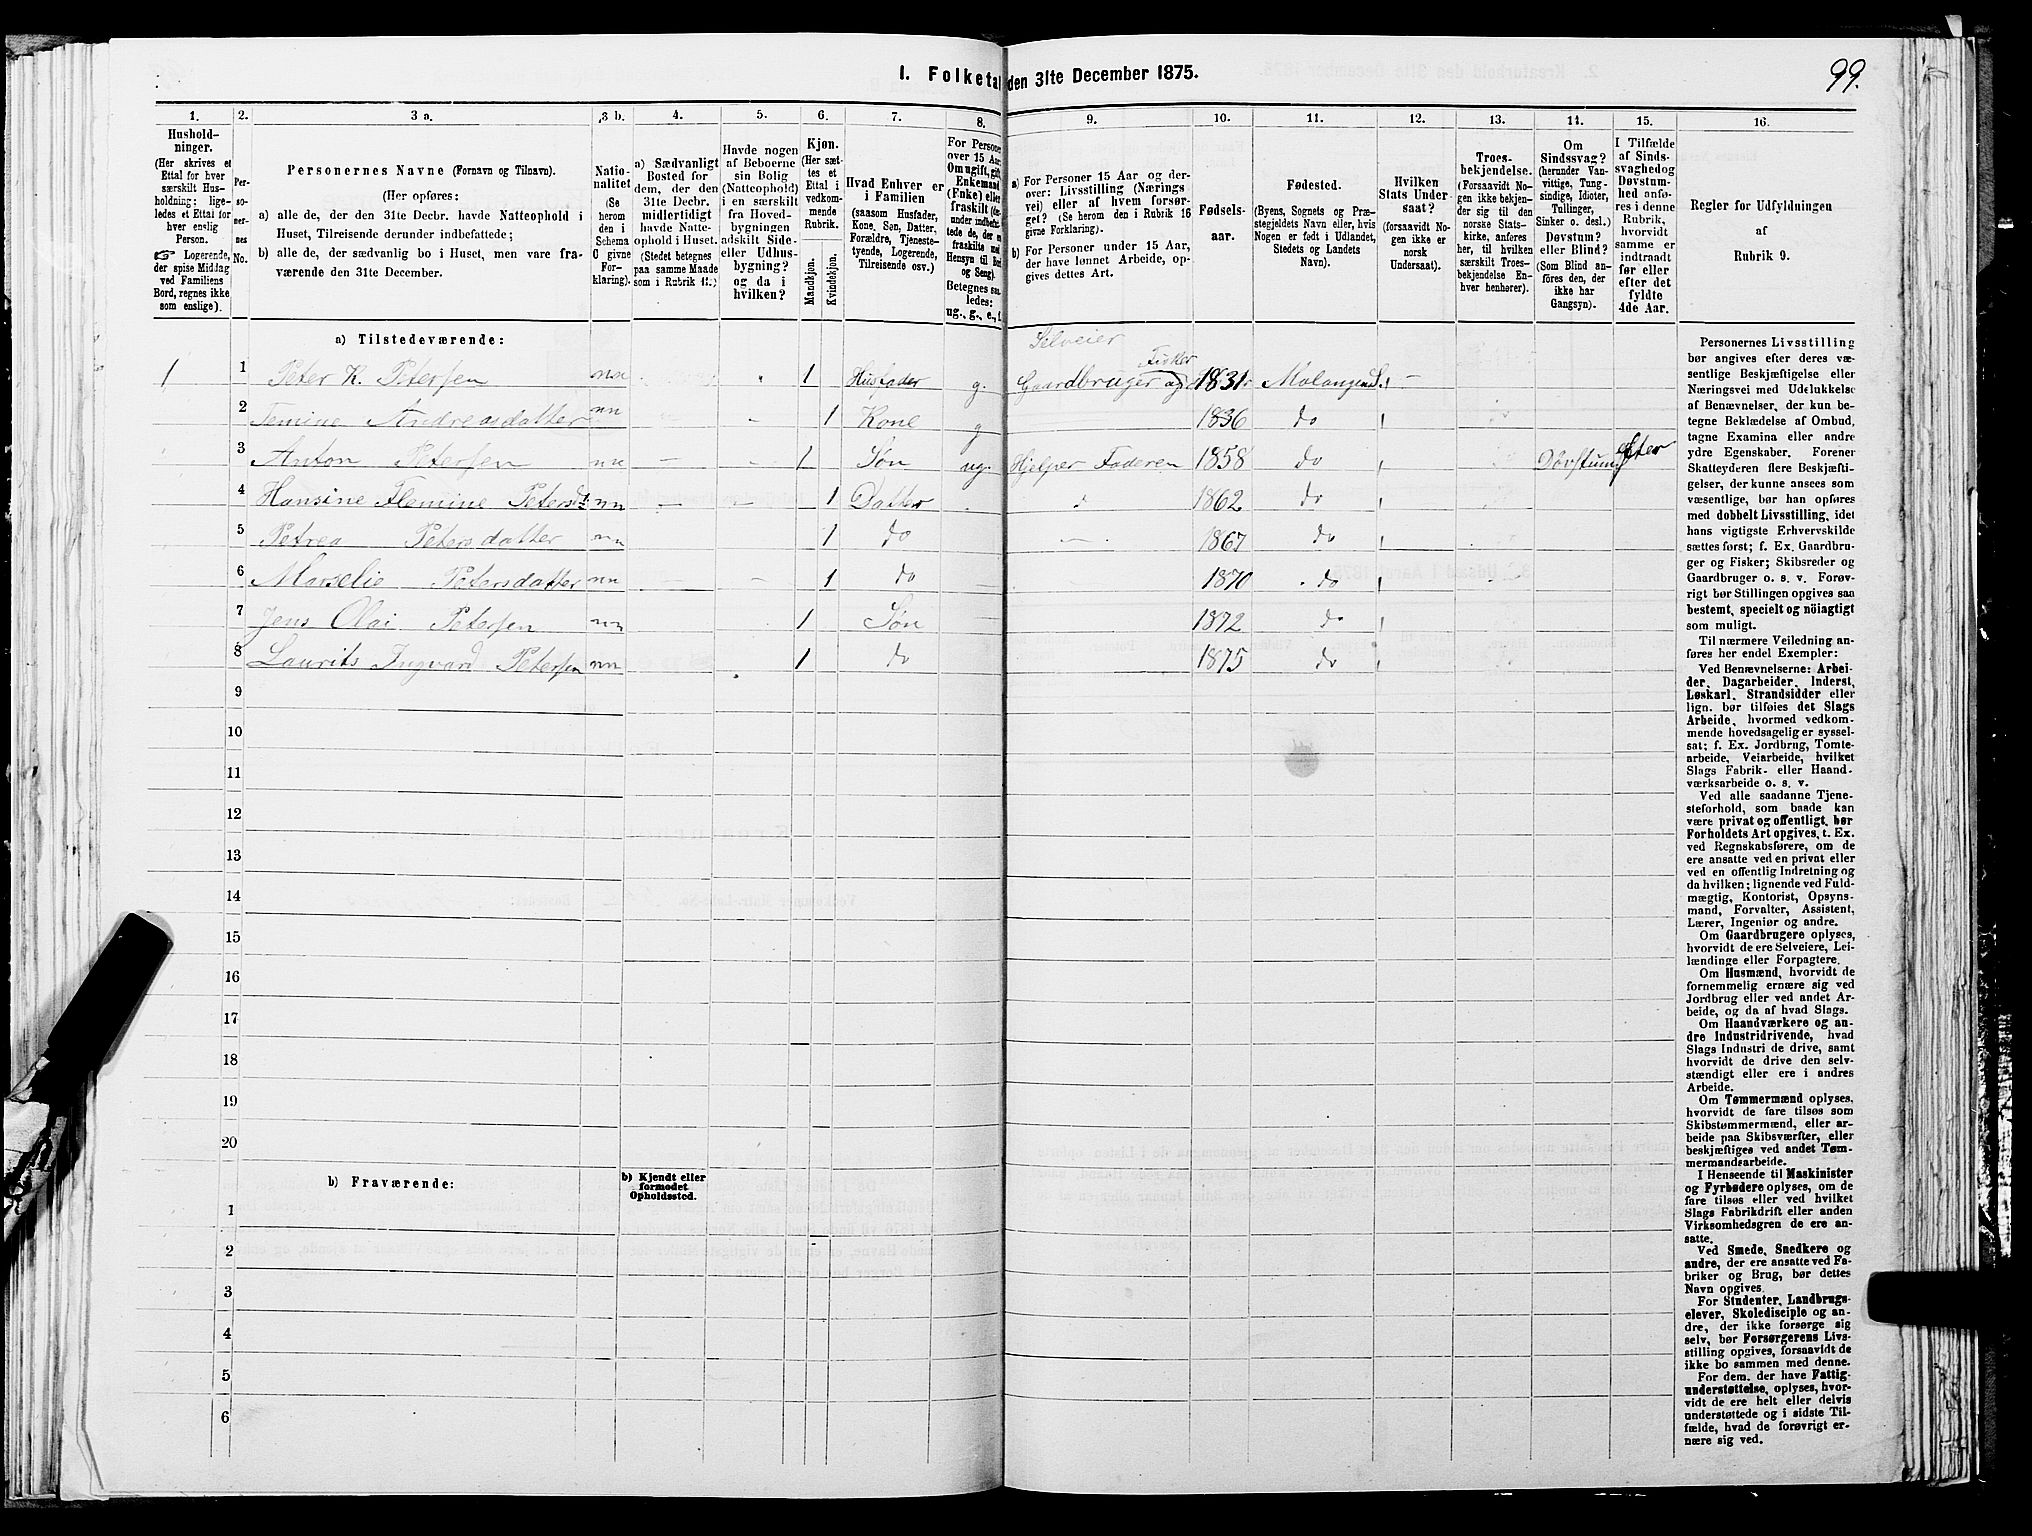 I. Folketal den 31te December 1875.
99.
1.
Hushold-
ninger.
(Her skrives et
Ettal for hver
særskilt Hus-
holdning; lige-
ledes et Ettal for
hver enslig
Person.
☞ Logerende,
der spise Middag
ved Familiens
Bord, regnes ikke
som enslige).
2.
Per-
so-
ner-
nes
No.
3 a.
Personernes Navne (Fornavn og Tilnavn).
(Her opføres:
a) alle de, der den 31te Decbr. havde Natteophold i
Huset, Tilreisende derunder indbefattede;
b) alle de, der sædvanlig bo i Huset, men vare fra-
værende den 31te December.
3 b.
Natio-
nalitet
(Se
herom
den i
Schema
O givne
For-
klaring).
4.
a) Sædvanligt
Bosted for
dem, der den
31te Decbr.
midlertidigt
havde Natte-
ophold i Huset.
(Stedet betegnes
paa samme Maade
som i Rubrik 11.)
5.
Havde nogen
af Beboerne
sin Bolig
(Natteophold)
i en særskilt
fra Hoved-
bygningen
adskilt Side-
eller Udhus-
bygning?
og da i
hvilken?
6.
Kjøn.
(Her sæt-
tes et
Ettal i
vedkom-
mende
Rubrik.
Mandkjøn.
Kvindekjøn.
7.
Hvad Enhver er
i Familien
(saasom Husfader,
Kone, Søn, Datter,
Forældre, Tjeneste-
tyende, Logerende,
Tilreisende osv.)
8.
For Personer
over 15 Aar:
Om ugift, gift,
Enkemand
(Enke) eller
fraskilt
ug., g., e., f.
9.
a) For Personer 15 Aar og der-
over: Livsstilling (Nærings
vei) eller af hvem forsør-
get? (Se herom den i Rubrik 16
givne Forklaring).
b) For Personer under 15 Aar,
der have lønnet Arbeide, op-
gives dettes Art.
10.
Fødsels-
aar.
11.
Fødested.
(Byens, Sognets og Præ-
stegjeldets Navn eller, hvis
Nogen er født i Udlandet,
Stedets og Landets
Navn).
12.
Hvilken
Stats Under-
saat?
(forsaavidt No-
gen ikke er
norsk
Undersaat).
13.
Troes-
bekjendelse.
(Forsaavidt No-
gen ikke bekjen-
der sig til den
norske Stats-
kirke, anføres
her, til hvilken
særskilt Troes-
bekjendelse En-
hver henhører).
14.
Om
Sindssvag?
(herunder Van-
vittige, Tung-
sindige, Idioter,
Tullinger,
Sinker o. desl.)
Døvstum?
eller Blind?
(Som Blind an-
føres den, der
ikke har
Gangsyn).
15.
I Tilfælde
af Sinds-
svaghed og
Døvstum-
hed anfø-
res i denne
Rubrik,
hvorvidt
samme er
indtraadt
før eller
efter det
fyldte
4de Aar.
16.
Regler for Udfyldningen
af
Rubrik 9.
a) Tilstedeværende:
Selveier
Fisker
1 1 Peter K. Petersen nn 1 Husfader g. Gaardbruger og 1831 Malangens.
2 Andreasdatter nn 1 Kone g 1836 do
3 Anton Petersen nn 1 Søn ug. Hjelper Faderen 1858 do Døvstum efter
4 Hansine Flemine Petersdt. nn 1 Datter 1862 do
5 Petrea Petersdatter nn 1 do 1867 do
6 Marselie Petersdatter nn 1 do 1870 do
7 Jens Olai Petersen nn 1 Søn 1872 do
8 Laurits Ingvard Petersen nn 1 do 1875 do
9
10
11
12
13
14
15
16
17
18
19
20
b) Fraværende:
b) Kjendt eller
formodet
Opholdssted.
1
2
3
4
5
6
Personernes Livsstilling
bør angives efter deres væ-
sentlige Beskjæftigelse eller
Næringsvei med Udelukkelse
af Benævnelser, der kun be-
tegne Beklædelse af Ombud,
tagne Examina eller andre
ydre Egenskaber. Forener
Skatteyderen flere Beskjæfti-
gelser, der kunne ansees som
væsentlige, bør han opføres
med dobbelt Livsstilling, idet
hans vigtigste Erhvervskilde
sættes først; f. Ex. Gaardbru-
ger og Fisker; Skibsreder og
Gaardbruger o. s. v. Forøv-
rigt bør Stillingen opgives saa
bestemt, specielt og nöiagtigt
som muligt.
Til nærmere Veiledning an-
føres her endel Exempler:
Ved Benævnelserne: Arbei-
der, Dagarbeider, Inderst,
Løskarl, Strandsidder eller
lign. bør tilføies det Slags
Arbeide, hvormed vedkom-
mende hovedsagelig er syssel-
sat; f. Ex. Jordbrug, Tomte-
arbeide, Veiarbeide, hvilket
Slags Fabrik- eller Haand-
værksarbeide o. s. v.
Ved alle saadanne Tjene-
steforhold, som baade kan
være privat og offentligt, bør
Forholdets Art opgives, t. Ex.
ved Regnskabsførere, om de
ere ansatte ved en privat eller
ved en offentlig Indretning og
da hvilken; lignende ved Fuld-
mægtig, Kontorist, Opsyns-
mand, Forvalter, Assistent,
Lærer, Ingeniør og andre.
Om Gaardbrugere oplyses,
hvorvidt de ere Selveiere, Lei-
lændinge eller Forpagtere.
Om Husmænd, hvorvidt de
fornemmelig ernære sig ved
Jordbrug eller ved andet Ar-
beide, og da af hvad Slags.
Om Haandværkere og an-
dre Industridrivende, hvad
Slags Industri de drive, samt
hvorvidt de drive den selv-
stændigt eller ere i andres
Arbeide.
Om Tømmermænd oplyses,
hvorvidt de fare tilsøs som
Skibstømmermænd, eller ar-
beide paa Skibsværfter, eller
beskjæftiges ved andet Tøm-
mermandsarbeide.
I Henseende til Maskinister
og Fyrbødere oplyses, om de
fare tilsøs eller ved hvilket
Slags Fabrikdrift eller anden
Virksomhedsgren de ere an-
satte.
Ved Smede, Snedkere og
andre, der ere ansatte ved Fa-
briker og Brug, bør dettes
Navn opgives.
For Studenter, Landbrugs-
elever, Skoledisciple og an-
dre, der ikke forsørge sig
selv, bør Forsørgerens Livs-
stilling opgives, forsaavidt de
ikke bo sammen med denne.
For dem, der have Fattig-
understøttelse, oplyses, hvor-
vidt de ere helt eller delvis
understøttede og i sidste Til-
fælde, hvad de forøvrigt er-
nære sig ved.